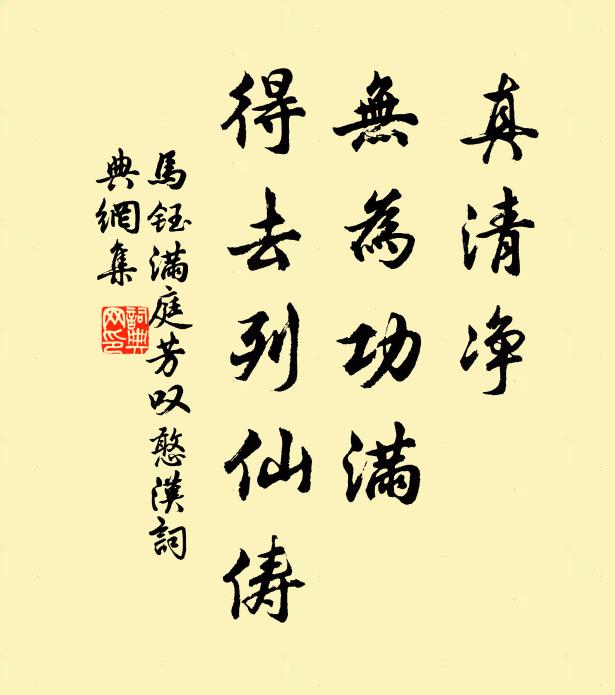 真清净
無為功满
得去列仙俦
馬鈺满庭芳叹憨漢詞
典網集
詞典网印